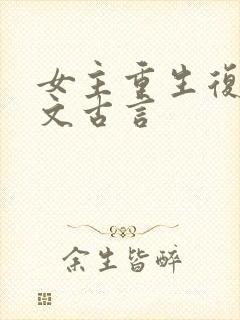 女主重生復
文古言
余生皆醉